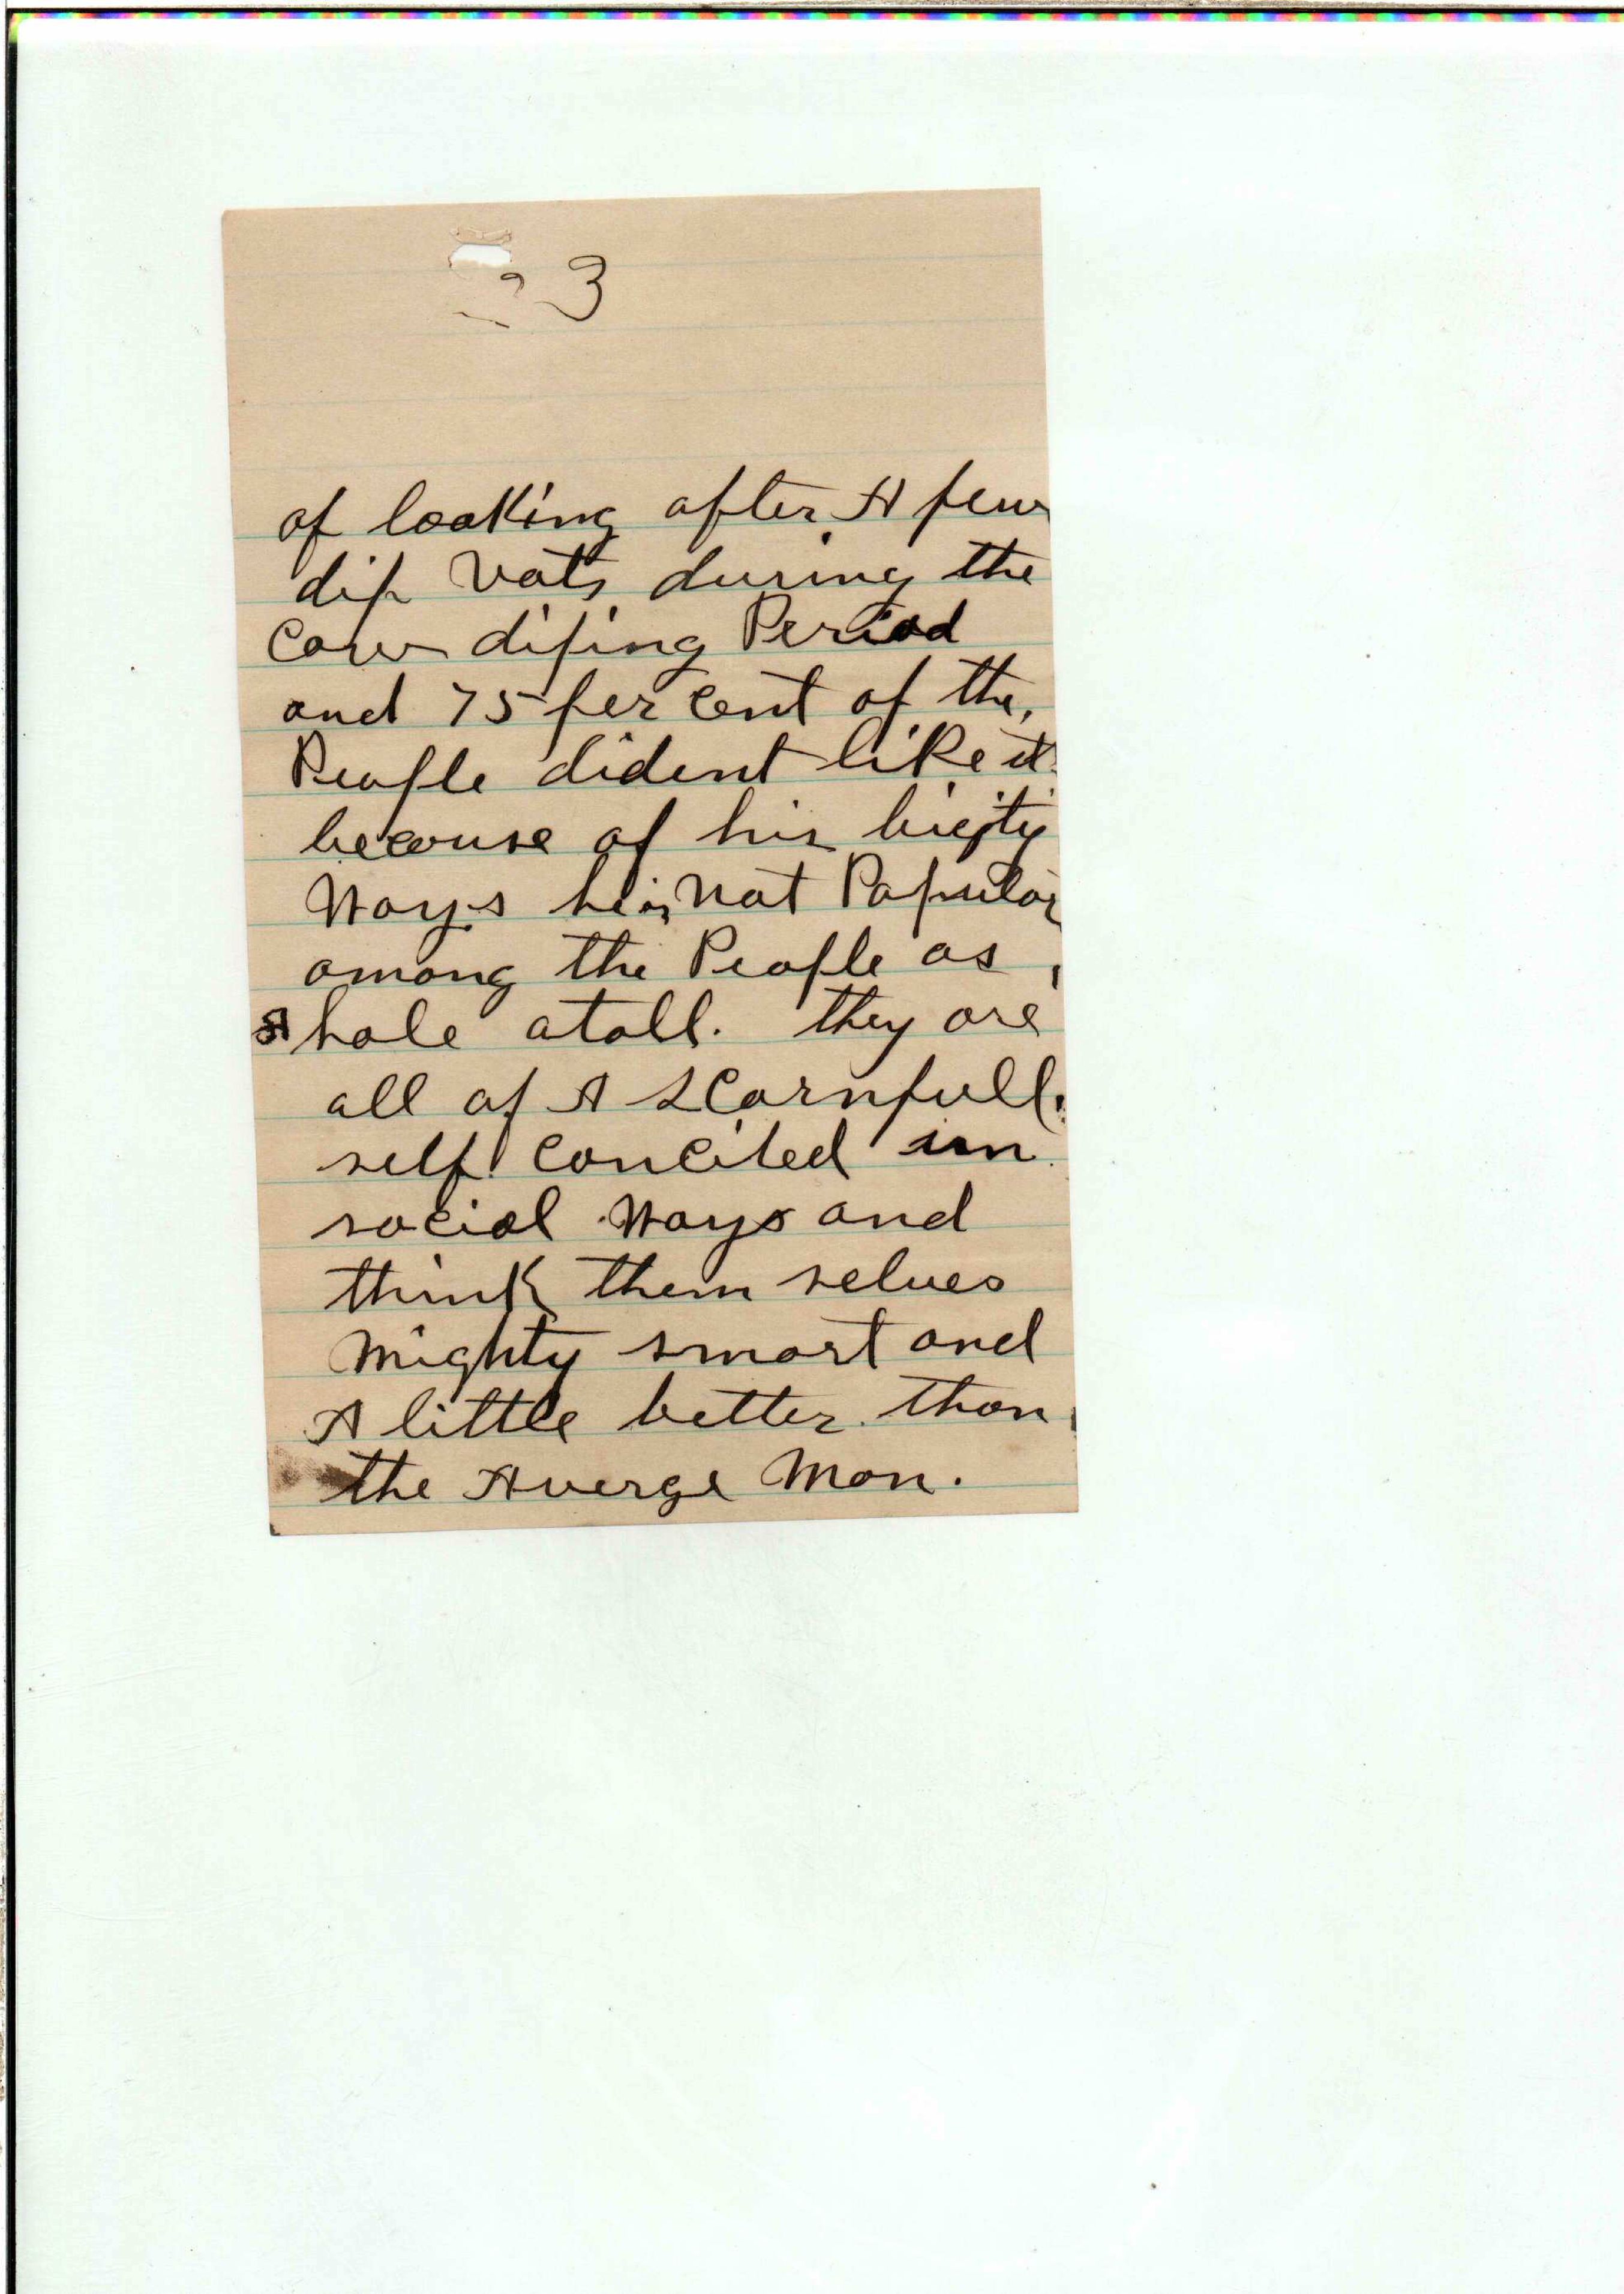 3
of looking after A few
dip Vats during the
Cow diping Period
and 75 per cent of the,
People dident like it.
because of his
Ways he is Not Popular
among the People as
A hole atall. they are
all of A sCornfull.
self concited un
social Ways and
think them selves
Mighty smart and
A little better than
the Averge Man.